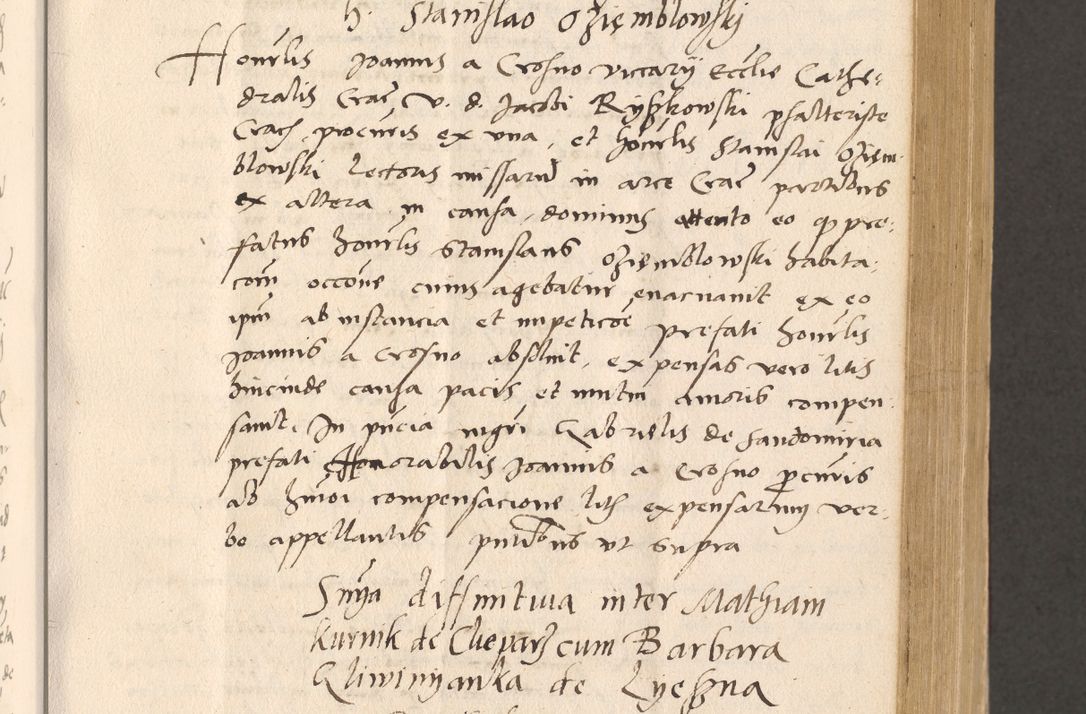 h. Stanislao Oziemblowskj
Honrlis Joannis a Crosno viccarij Ecclie Cathe-
dralis Crac, v. d. Jacobi Ryszkowski psalteriste
Crach procuris ex una, et honrlis Stanislai Oziem-
blowski lectoris missarum in arce Crac partibus
ex altera in causa, dominus attento eo q pre-
fatus honrlis Stanislaus Oziemblowski habita
com occone cuius agebatur enarnauit ex eo
ipm ab instancia et impeticoe prefati honrlis
Joannis a Crosno absoluit, expensas vero litis
hincinde causa pacis et mutui amoris compen-
sauit, In pncia mgri Gabrielis de Sandomiria
prefati Honorabilis Joannis a Crosno procuris
ab hmoi compensacione litis expensarum ver-
bo appellantis pntibus ut supra
Snia diffinitiua inter Mathiam
Kurnik de Cleparz cum Barbara
Gliwinyanka de Lyeszna